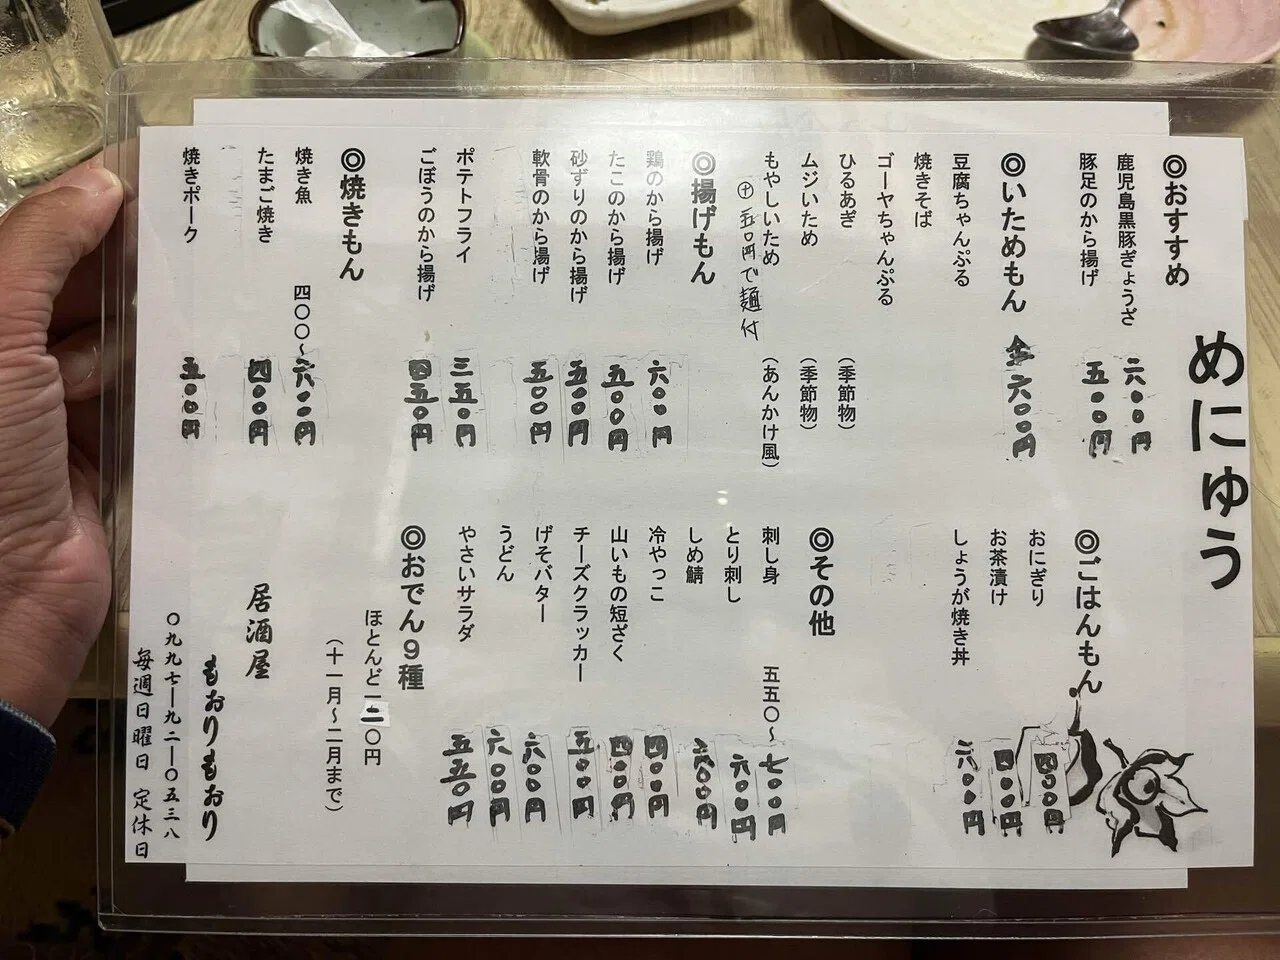 めにゅう
◎おすすめ
鹿児島黒豚ぎょうざ 六〇〇円
豚足のから揚げ 五〇〇円
◎いためもん 全六〇〇円
豆腐ちゃんぷる
焼きそば
ゴーヤちゃんぷる
ひるあぎ (季節物)
ムジいため (季節物)
もやしいため (あんかけ風)
㊉五〇円で麺付
◎揚げもん
鶏のから揚げ 六〇〇円
たこのから揚げ 五〇〇円
砂ずりのから揚げ 五〇〇円
軟骨のから揚げ 五〇〇円
ポテトフライ 三五〇円
ごぼうのから揚げ 四五〇円
◎焼きもん
焼き魚 四〇〇~六〇〇円
たまご焼き 四〇〇円
焼きポーク 五〇〇円
◎ごはんもん
おにぎり 四〇〇円
お茶漬け 四〇〇円
しょうが焼き丼 六〇〇円
◎その他
刺し身 五五〇~七〇〇円
とり刺し 六〇〇円
しめ鯖 六〇〇円
冷やっこ 四〇〇円
山いもの短ざく 四〇〇円
チーズクラッカー 五〇〇円
げそバター 六〇〇円
うどん 六〇〇円
やさいサラダ 五五〇円
◎おでん9種
ほとんど一二〇円
(十一月~二月まで)
居酒屋
もおりもおり
〇九九七―九二―〇五三八
毎週日曜日 定休日